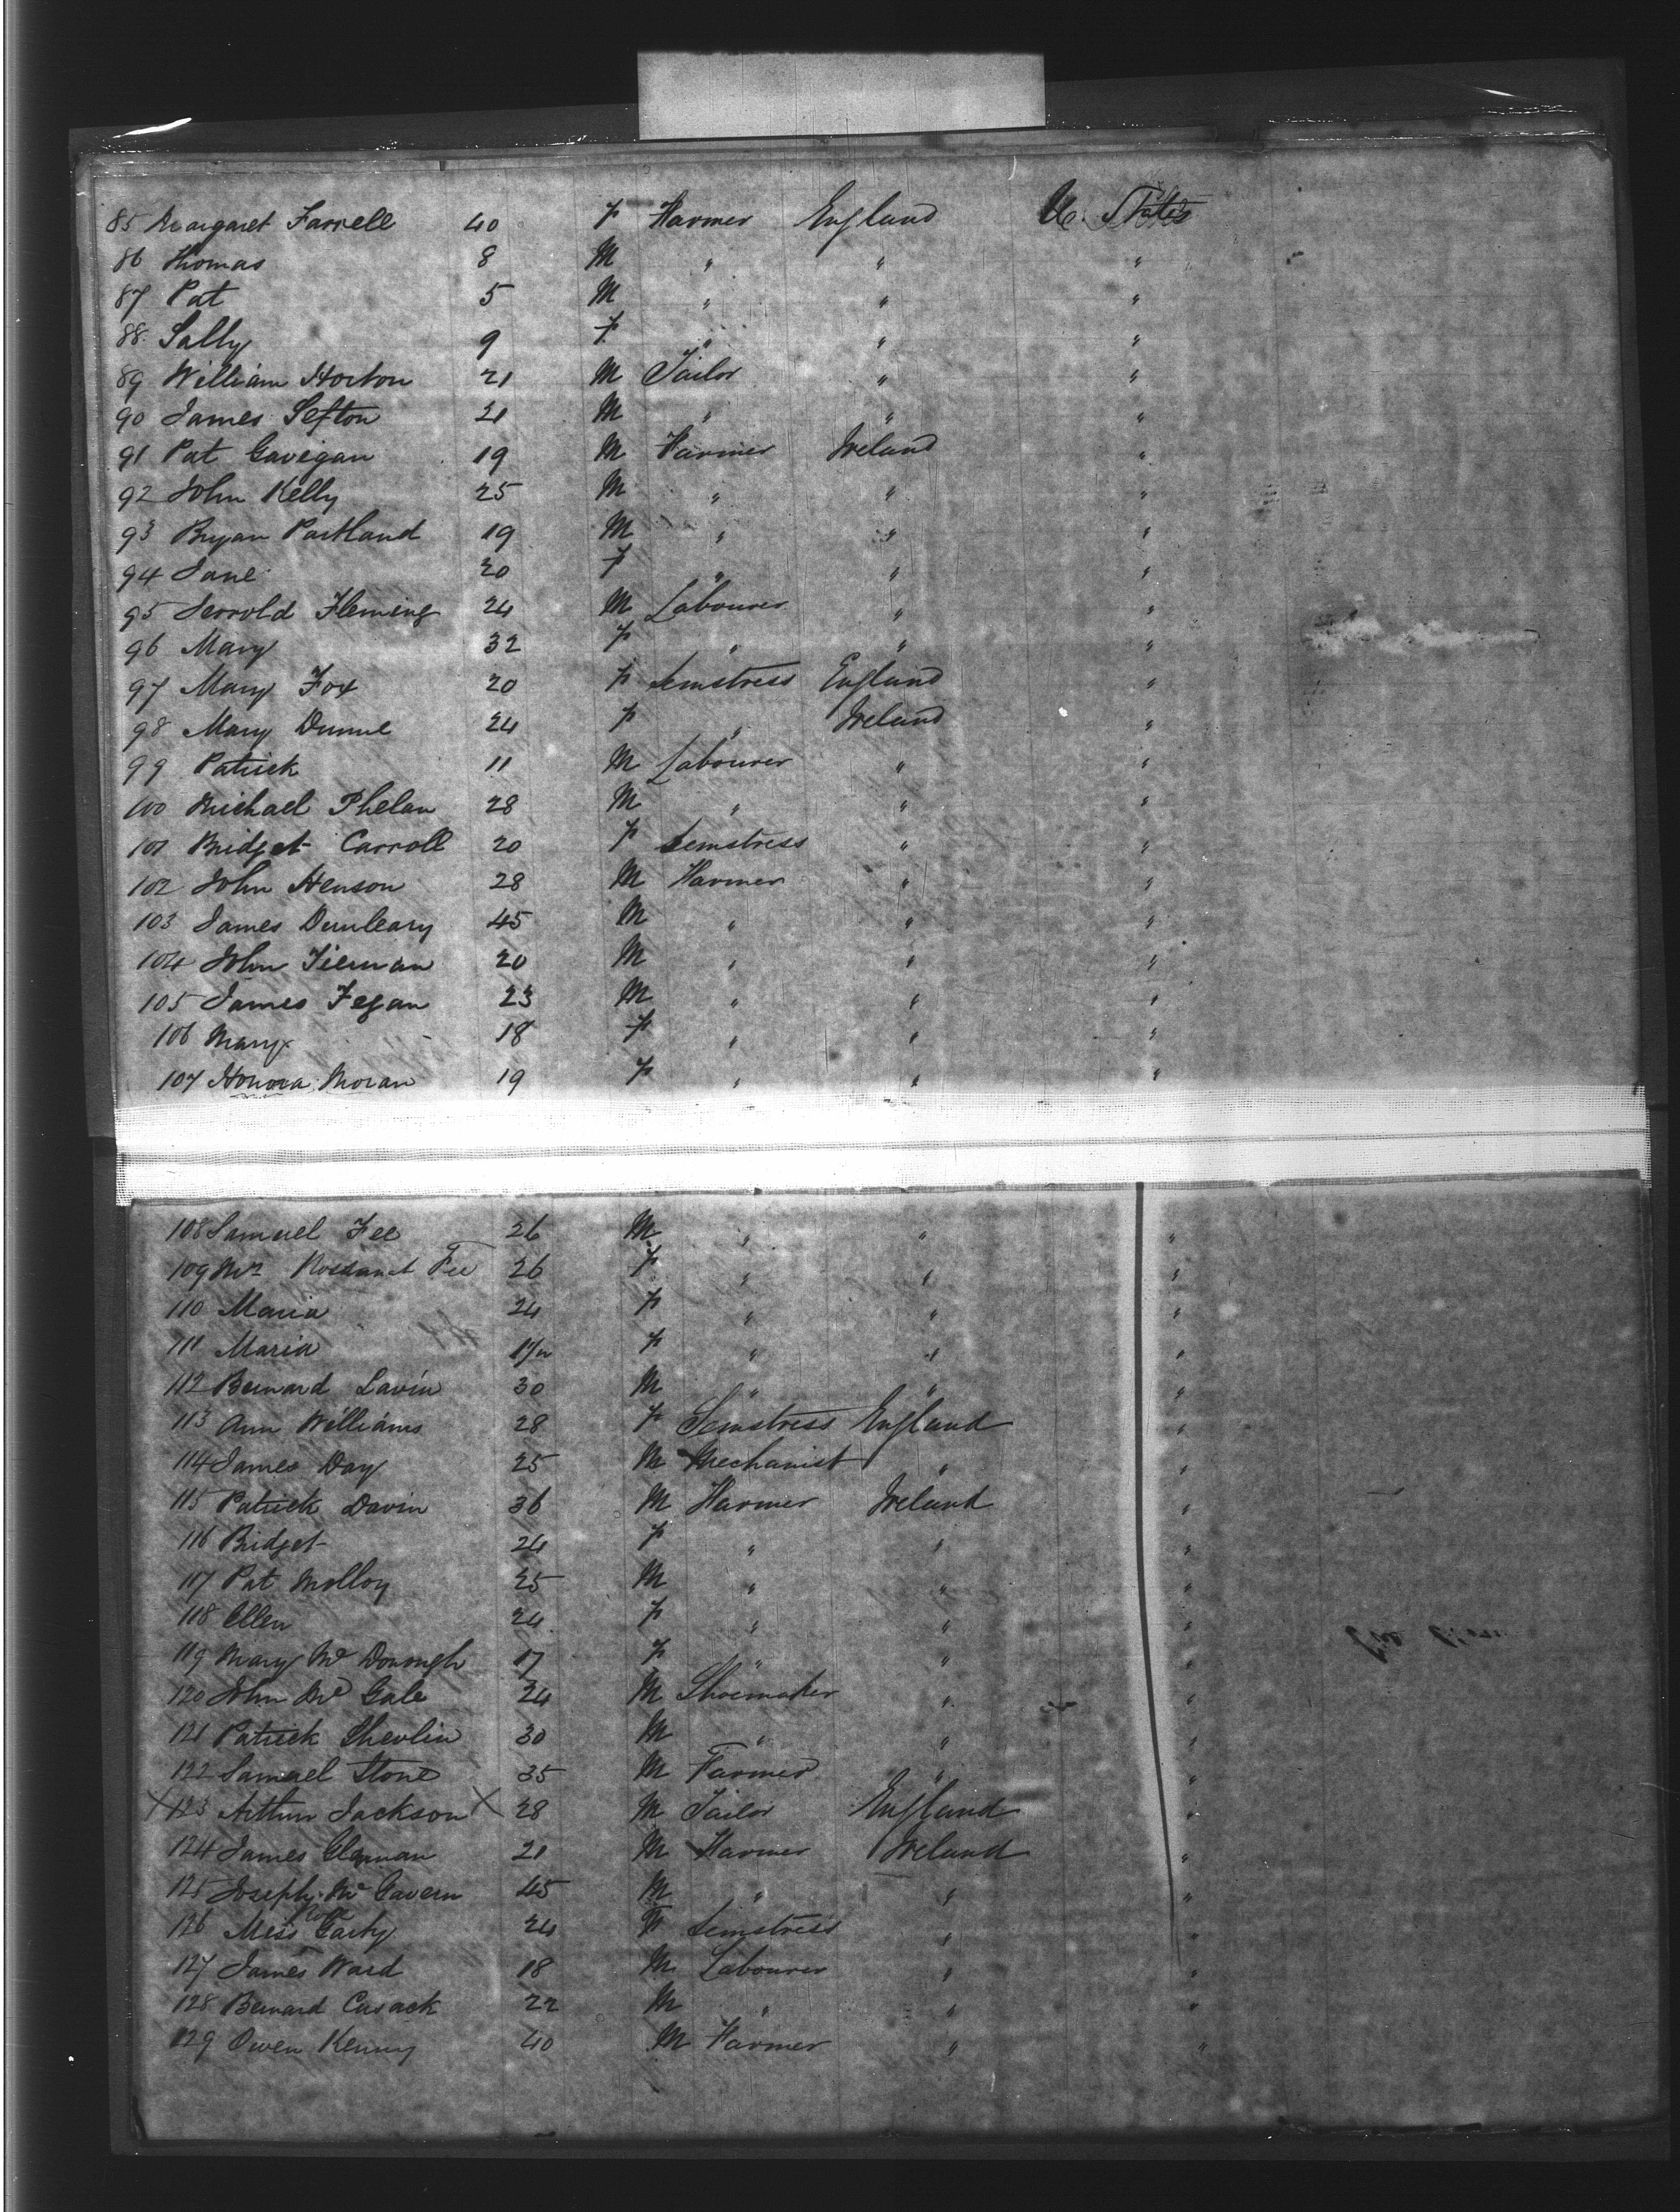 85 Margaret Farrell 40 F Farmer England U. States
86 Thomas 8 M " " "
87 Pat 5 M " " "
88 Sally 9 F " " "
89 William Horton 21 M Tailor " "
90 James Sefton 21 M " " "
91 Pat Gavigan 19 M Farmer Ireland "
92 John Kelly 25 M " " "
93 Bryan Partland 19 M " " "
94 Jane 20 F " " "
95 Jerrold Fleming 24 M Labourer " "
96 Mary 32 F " " "
97 Mary Fox 20 F Semstress England "
98 Mary Dunne 24 F " Ireland "
99 Patrick 11 M Labourer " "
100 Michael Phelan 28 M " " "
101 Bridget Carroll 20 F Semstress " "
102 John Henson 28 M Farmer " "
103 James Dunleary 45 M " " "
104 John Tiernan 20 M " " "
105 James Fegan 23 M " " "
106 Mary 18 F " " "
107 Honora Moran 19 F " " "
108 Samuel Fee 26 M " " "
109 Mrs Fee 26 F " " "
110 Maria 24 F " " "
111 Maria F " " "
112 Bernard Lavin 30 M " " "
113 Ann Williams 28 F Semstress England "
114 James Day 25 M Mechanist " "
115 Patrick Davin 36 M Farmer Ireland "
116 Bridget 24 F " " "
117 Pat Molloy 25 M " " "
118 Ellen 24 F " " "
119 Mary Mc Donough 17 F " " "
120 John Mc Gale 24 M Shoemaker " "
121 Patrick Shevlin 30 M " " "
122 Samuel Stone 35 M Farmer " "
X 123 Arthur Jackson X 28 M Tailor England "
124 James 21 M Farmer Ireland "
125 Joseph Mc Gavern 45 M " " "
126 Miss Rose Garty 24 F Semstress " "
127 James Ward 18 M Labourer " "
128 Bernard Cusack 22 M " " "
129 Owen Kenny 40 M Farmer " "